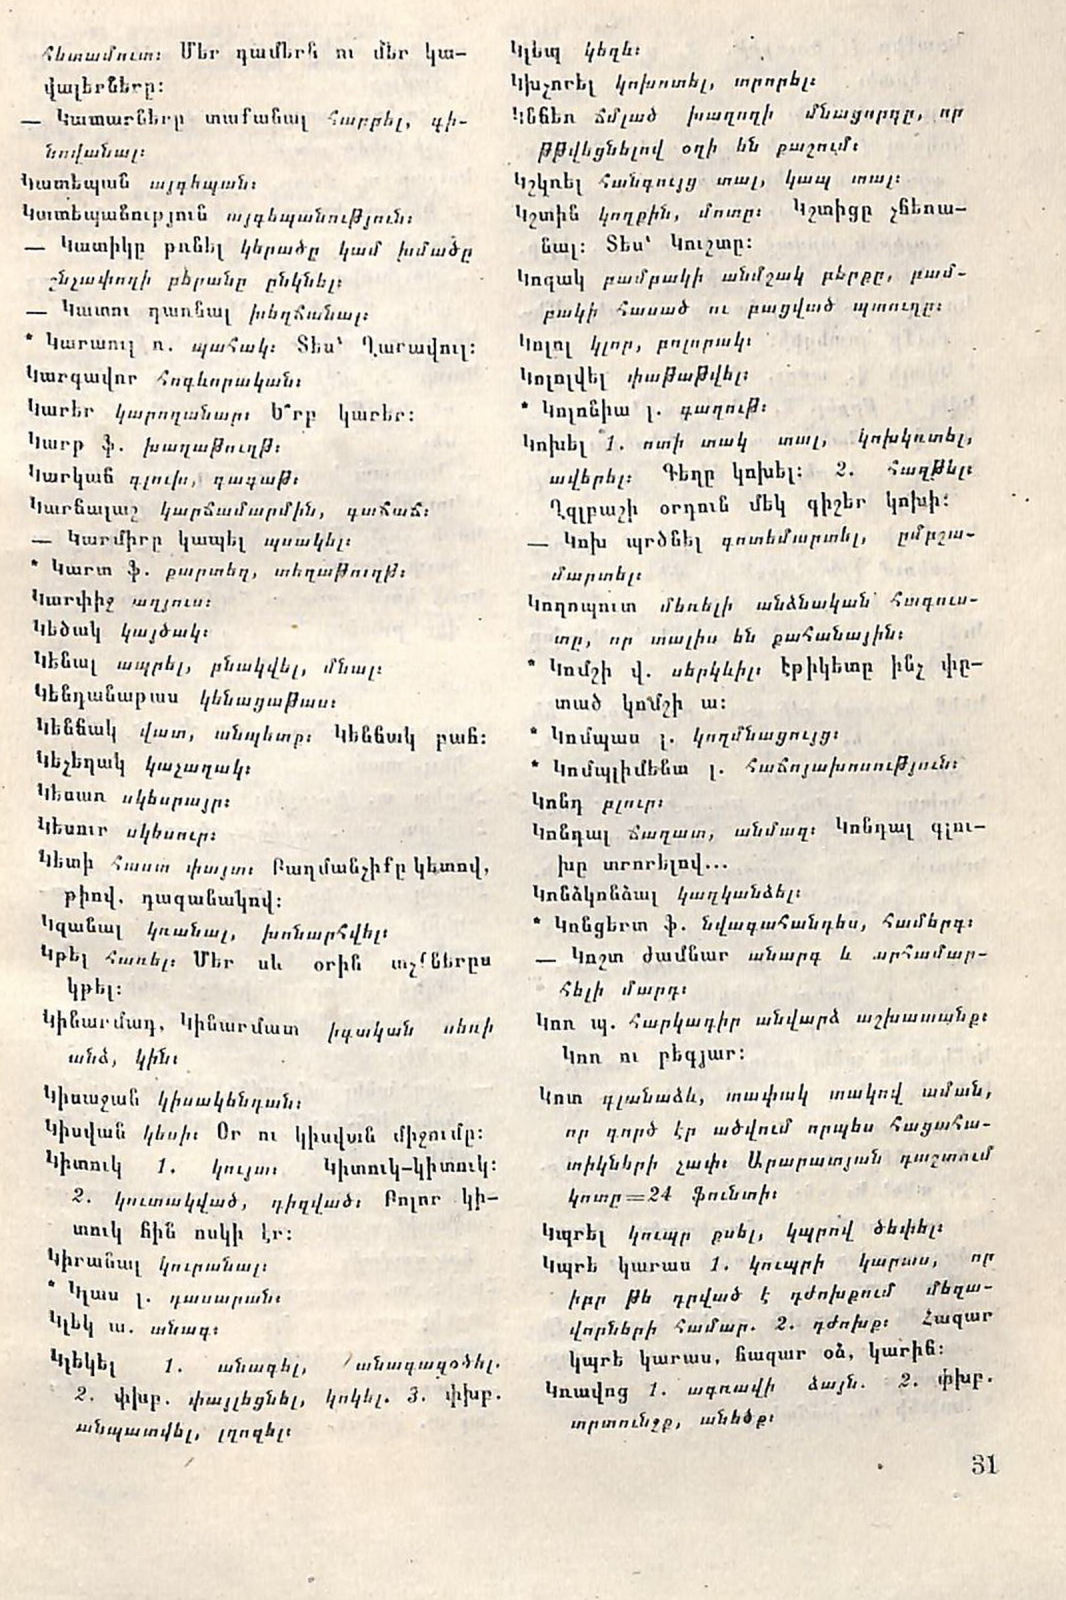 հետամուտ։ Մեր դամերն ու մեր կա-
վալերները։
— Կատարները տաքանալ հարբել, գի-
նովանալ։
Կատեպան այգեպան։
Կատեպանություն այգեպանություն։
— Կատիկը թռնել կերածը կամ խմածը
շնչափողի բերանը ընկնել։
— Կատու դառնալ խեղճանալ։
* Կարաուլ ռ. պահակ։ Տես՝ Ղարավուլ։
Կարգավոր հոգևորական։
Կարեր կարողանար։ Ե՞րբ կարեր։
Կարթ ֆ. խաղաթուղթ։
Կարկաճ գլուխ, գագաթ։
Կարճալաշ կարճամարմին, գաճաճ։
— Կարմիրը կապել պսակել։
* Կարտ ֆ. քարտեզ, տեղաթուղթ։
Կարփիջ աղյուս։
Կեծակ կայծակ։
Կենալ ապրել, բնակվել, մնալ։
Կենդանաթաս կենացաթաս։
Կենճակ վատ, անպետք։ Կենճակ բան։
Կեչեղակ կաչաղակ։
Կեսառ սկեսրայր։
Կեսուր սկեսուր։
Կետի հաստ փայտ։ Բաղմանչիքը կետով,
թիով, դագանակով։
Կզանալ կռանալ, խոնարհվել։
Կթել հառել։ Մեր սև օրին աչքներըս
կթել։
Կինարմադ, Կինարմատ իգական սեռի
անձ, կին։
Կիսաջան կիսակենդան։
Կիսվան կեսի։ Օր ու կիսվան միջումը։
Կիտուկ 1. կույտ։ Կիտուկ-կիտուկ։
2. կուտակված, դիզված։ Բոլոր կի-
տուկ հին ոսկի էր։
Կիրանալ կուրանալ։
* Կլաս լ. դասարան։
Կլեկ ա. անագ։
Կլեկել 1. անագել, անագազօծել.
2. փխբ. փայլեցնել, կոկել. 3. փխբ.
անպատվել, լղոզել։
Կլեպ կեղև։
Կխչորել կոխոտել, տրորել։
Կնճեռ ճմլած խաղողի մնացորդը, որ
թթվեցնելով օղի են քաշում։
Կշկռել հանգույց տալ, կապ տալ։
Կշտին կողքին, մոտը։ Կշտիցը չհեռա-
նալ։ Տես՝ Կուշտը։
Կոզակ բամբակի անմշակ բերքը, բամ-
բակի հասած ու բացված պտուղը։
Կոլոլ կլոր, բոլորակ։
Կոլոլվել փաթաթվել։
* Կոլոնիա լ. գաղութ։
Կոխել 1. ոտի տակ տալ, կոխկռտել,
ավերել։ Գեղը կոխել։ 2. հաղթել։
Ղզլբաշի օրդուն մեկ գիշեր կոխի։
— Կոխ պրծնել գոտեմարտել, ըմբշա-
մարտել։
Կողոպուտ մեռելի անձնական հագուս-
տը, որ տալիս են քահանային։
* Կոմշի վ. սերկևիլ։ Էթիկետը ինչ փը-
տած կոմշի ա։
* Կոմպաս լ. կողմնացույց։
* Կոմպլիմենտ լ. հաճոյախոսություն։
Կոնդ բլուր։
Կոնդալ ճաղատ, անմազ։ Կոնդալ գլու-
խը տրորելով...
Կոնձկոնձալ կաղկանձել։
* Կոնցերտ ֆ. նվագահանդես, համերգ։
— Կոշտ ժամնար անարգ և արհամար-
հելի մարդ։
Կոռ պ. հարկադիր անվարձ աշխատանք։
Կոռ ու բեգյար։
Կոտ գլանաձև, տափակ տակով աման,
որ գործ էր ածվում որպես հացահա-
տիկների չափ։ Արարատյան դաշտում
կոտը=24 ֆունտի։
Կպրել կուպր քսել, կպրով ծեփել։
Կպրե կարաս 1. կուպրի կարաս, որ
իբր թե դրված է դժոխքում մեղա-
վորների համար. 2. դժոխք։ Հազար
կպրե կարաս, հազար օձ, կարիճ։
Կռավոց 1. ագռավի ձայն. 2. փխբ.
տրտունջք, անեծք։
31